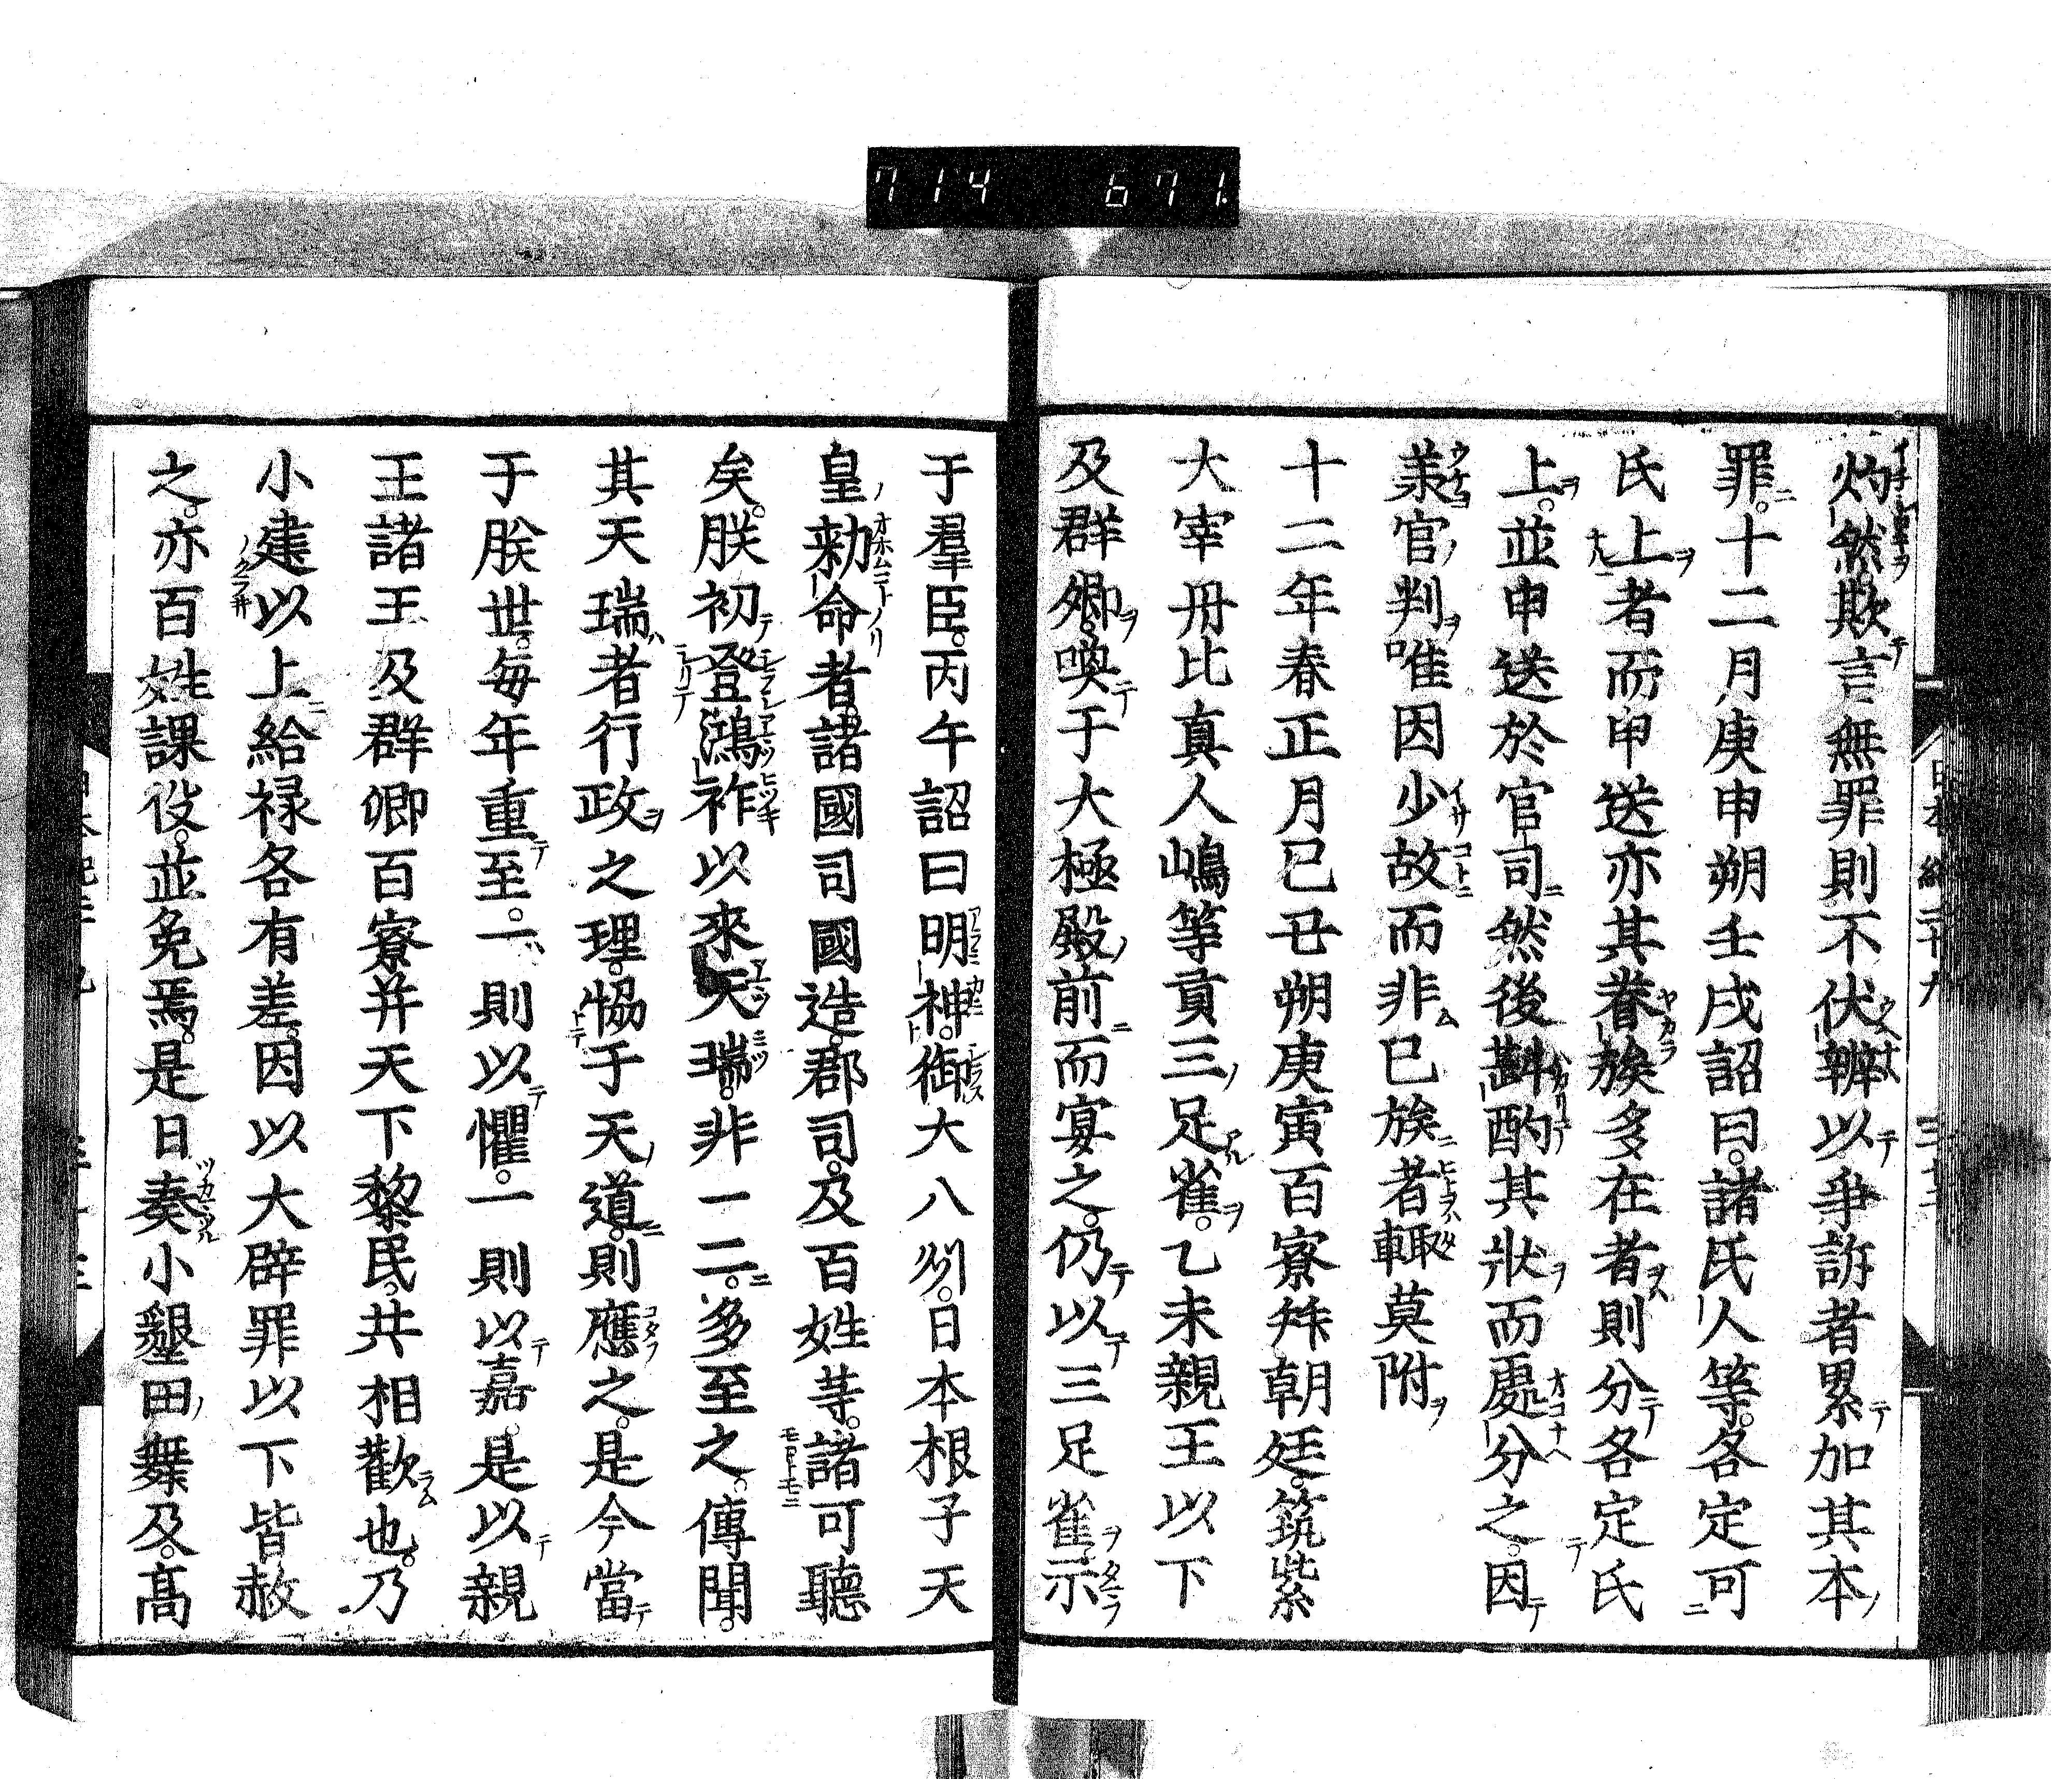 714 671
灼然欺言無罪則不伏辨以爭訴者累加其本
罪。十二月庚申朔壬戌詔曰。諸氏人等。各定可
氏上者而申送亦其眷族多在者則分各定氏
上。並申送於官司然後斟酌其狀而處分之。因
羕官判唯因少故而非已族者輙莫附
十二年春正月已丑朔庚寅百寮拜朝廷。筑紫
大宰丹比真人嶋等貢三足雀。乙未親王以下
及群卿。喚于大極殿前而宴之。仍以三足雀示
于羣臣。丙午詔曰明神。御大八洲。日本根子天
皇勅命者。諸國司國造。郡司。及百姓等。諸可聽
矣。朕初登鴻祚以來天瑞。非一二。多至之。傳聞。
其天瑞者行政之理。恊于天道。則應之。是今當
于朕世。毎年重至。一則以懼。一則以嘉。是以親
王諸王及群卿百寮并天下黎民。共相歡也。乃
小建以上給禄各有差。因以大辟罪以下皆赦
之。亦百姓課役。並免焉。是日奏小墾田舞及。髙